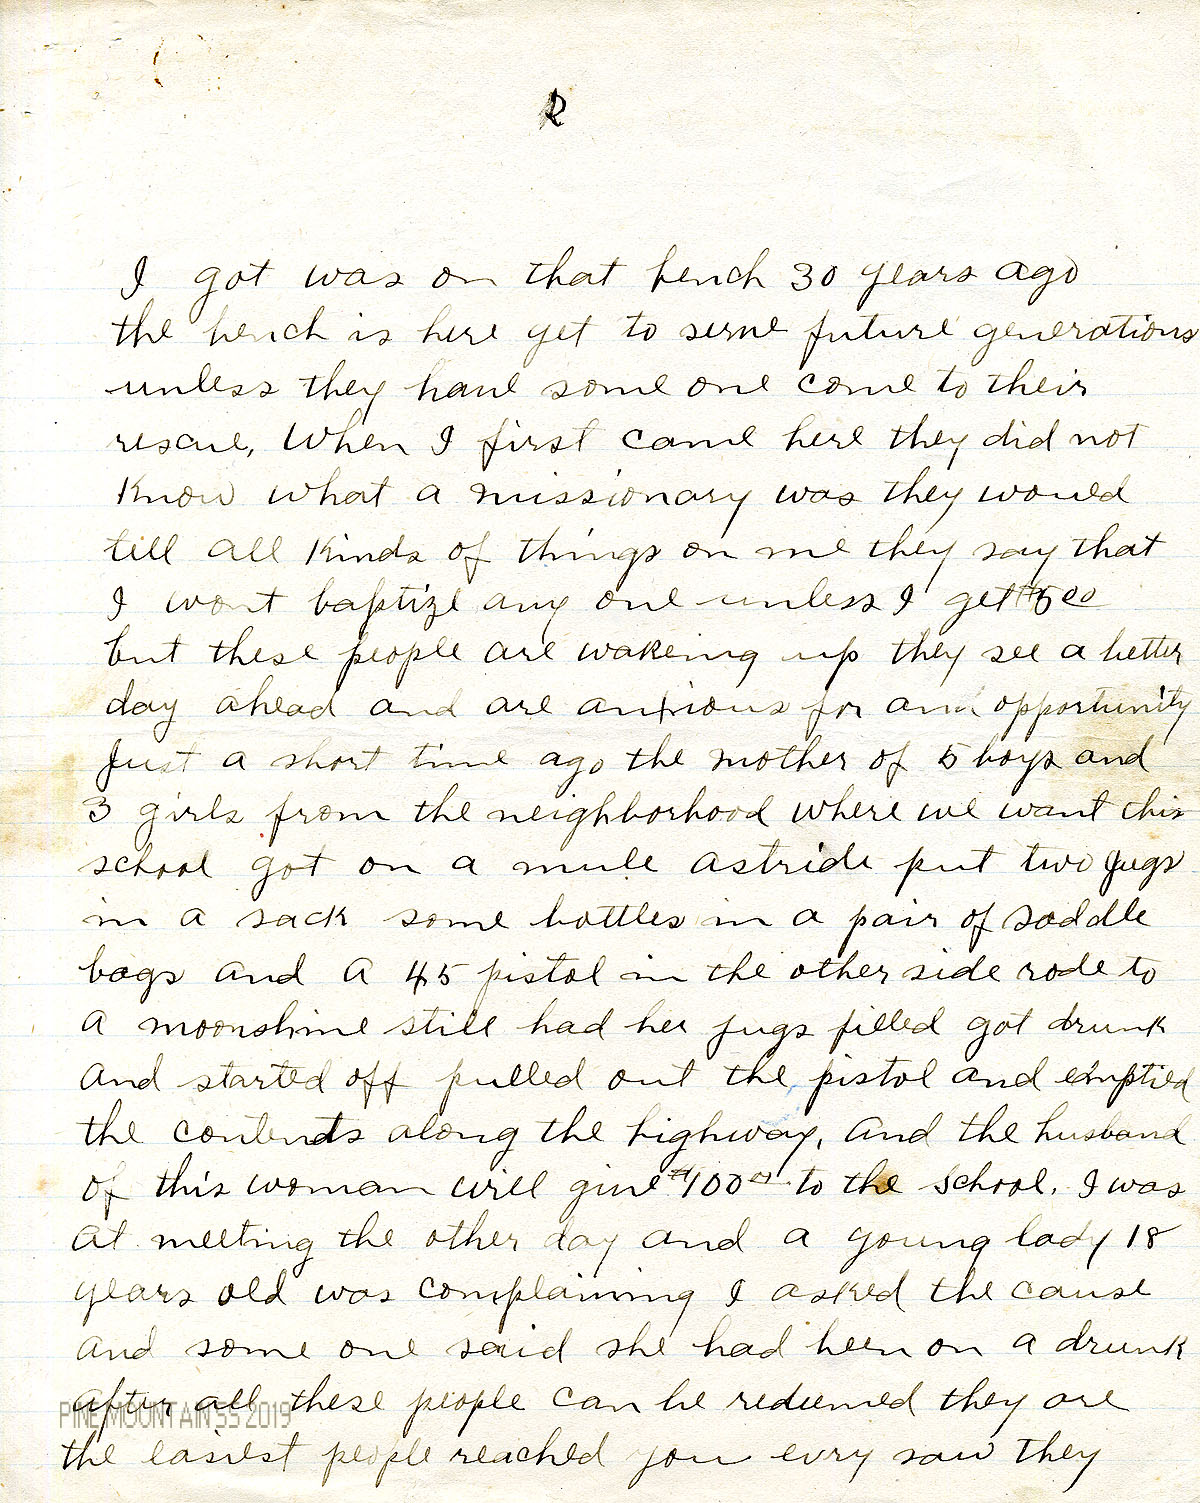 2
I got was on that bench 30 years ago
the bench is here yet to serve future generations
unless they have some one come to their
rescue, When I first came here they did not
know what a missionary was they would
till all kinds of things on me they say that
I wont baptize any one unless I get $5 00
but these people are wakeing up they see a better
day ahead and are anxious for an opportunity
Just a short time ago the mother of 5 boys and
3 girls from the neighborhood where we want this
school got on a mule astride put two jugs
in a sack some bottles in a pair of saddle
bags and a 45 pistol in the other side rode to
a moonshine still had her jugs filled got drunk
and started off pulled out the pistol and emptied
the contents along the highway, and the husband
of this woman will give $100 00 to the school. I was
at meeting the other day and a young lady 18
years old was complaining I asked the cause
and some one said she had been on a drunk
after all these people can be redeemed they are
PINE MOUNTAIN SS 2019
the easiest people reached you evry saw they